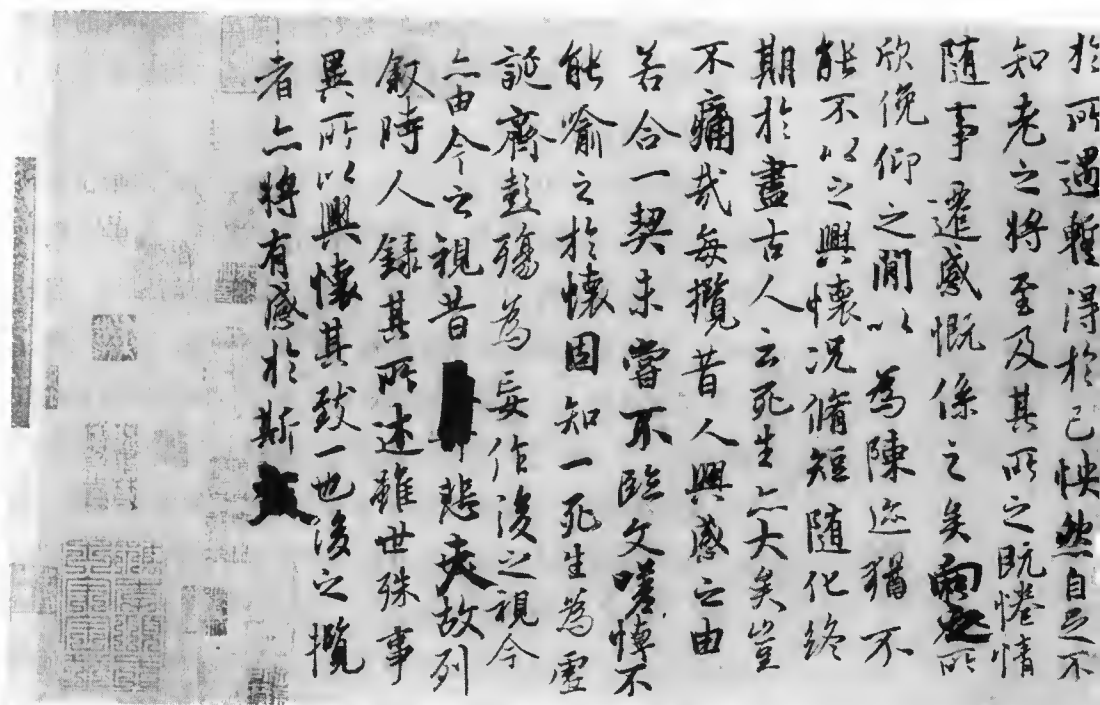 於所遇蹔得於己怏然自足不
知老之將至及其所之既惓情
隨事遷感慨係之矣向之所
欣俛仰之閒以為陳迹猶不
能不以之興懷况脩短隨化終
期於盡古人云死生亦大矣豈
不痛哉每攬昔人興感之由
若合一契未嘗不臨文嗟悼不
能喻之於懷固知一死生為虛
誕齊彭殤為妄作後之視今
亦由今之視昔悲夫故列
敘時人錄其所述雖世殊事
異所以興懷其致一也後之攬
者亦將有感於斯文